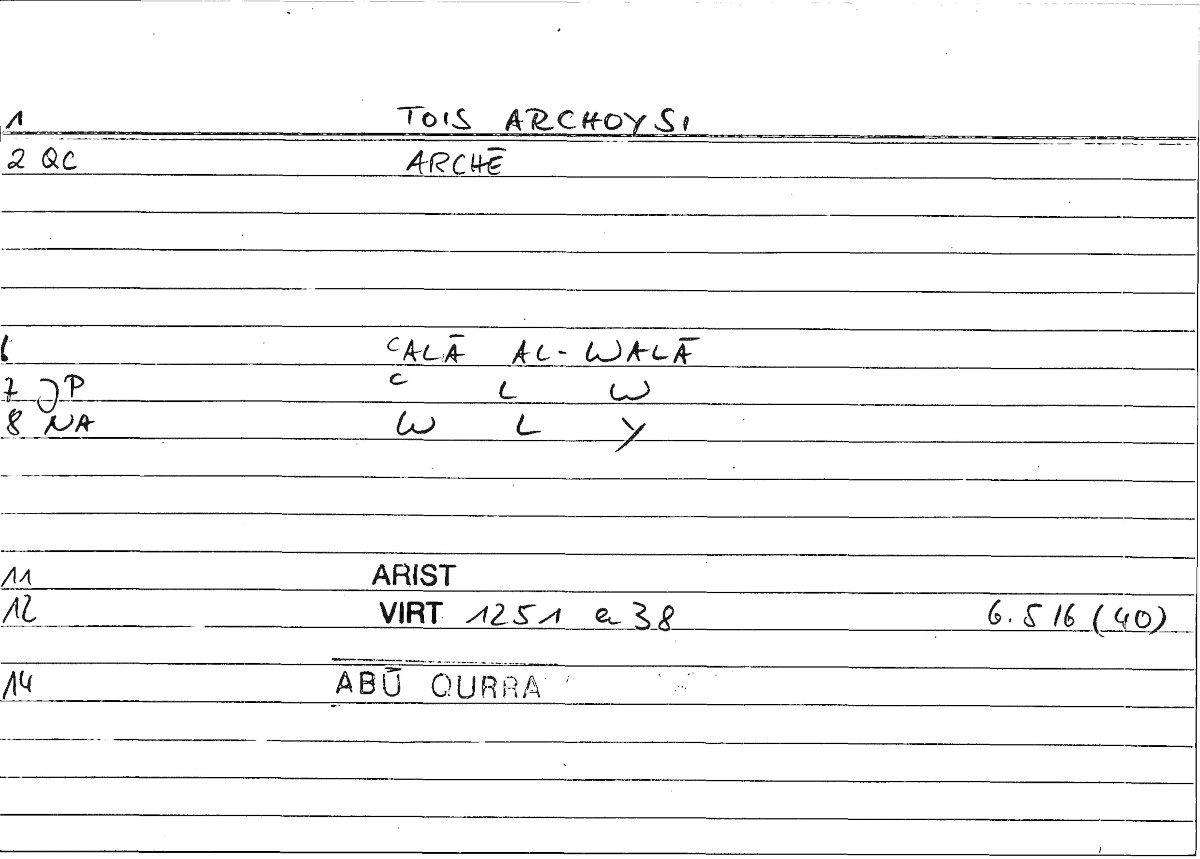 1 TOIS ARCHOYSI
2 QC ARCHĒ
6 ʿALĀ AL-WALĀ
7 JP ʿ L W
8 NA W L Y
11 ARIST
12 VIRT 1251 a 38 6.516 (40)
14 ABŪ QURRA